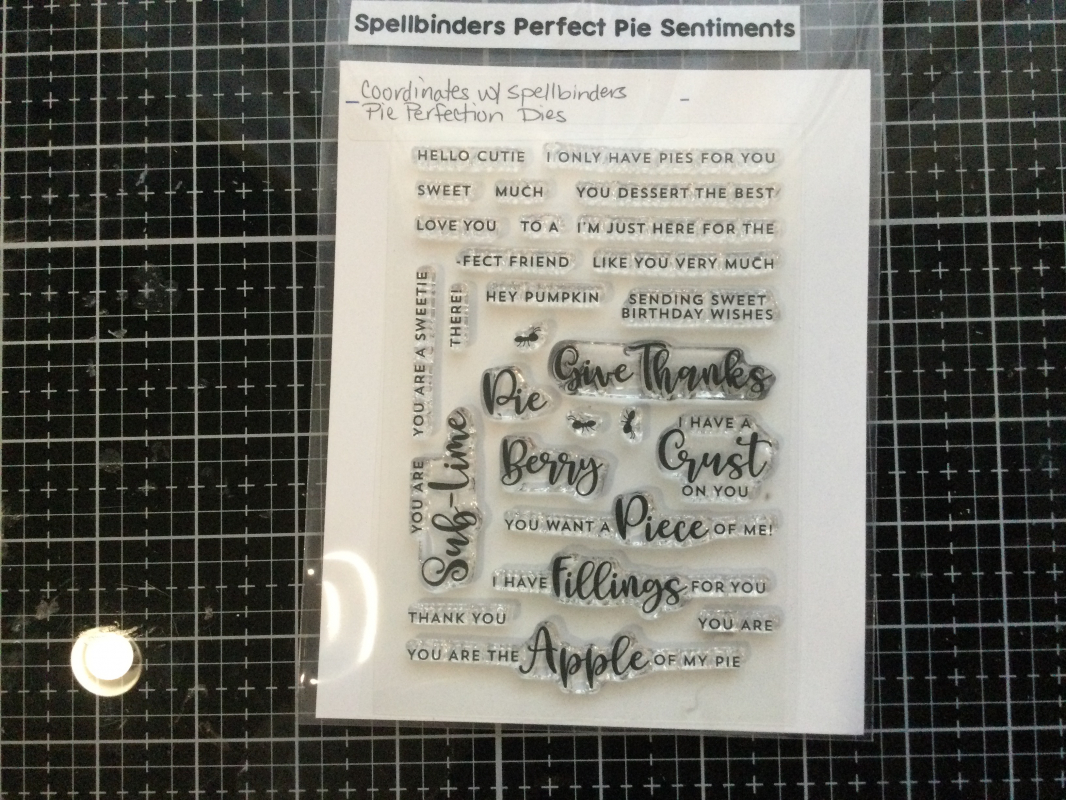 Spellbinders Perfect Pie Sentiments
Coordinates w/ Spellbinders
Pie Perfection Dies
HELLO CUTIE
I ONLY HAVE PIES FOR YOU
SWEET
MUCH
YOU DESSERT THE BEST
LOVE YOU
TO A
I'M JUST HERE FOR THE
-FECT FRIEND
LIKE YOU VERY MUCH
YOU ARE A SWEETIE
THERE!
HEY PUMPKIN
SENDING SWEET
BIRTHDAY WISHES
Give Thanks
Pie
I HAVE A
Crust
ON YOU
Berry
YOU ARE
Sub-Lime
YOU WANT A Piece OF ME!
I HAVE Fillings FOR YOU
THANK YOU
YOU ARE
YOU ARE THE Apple OF MY PIE